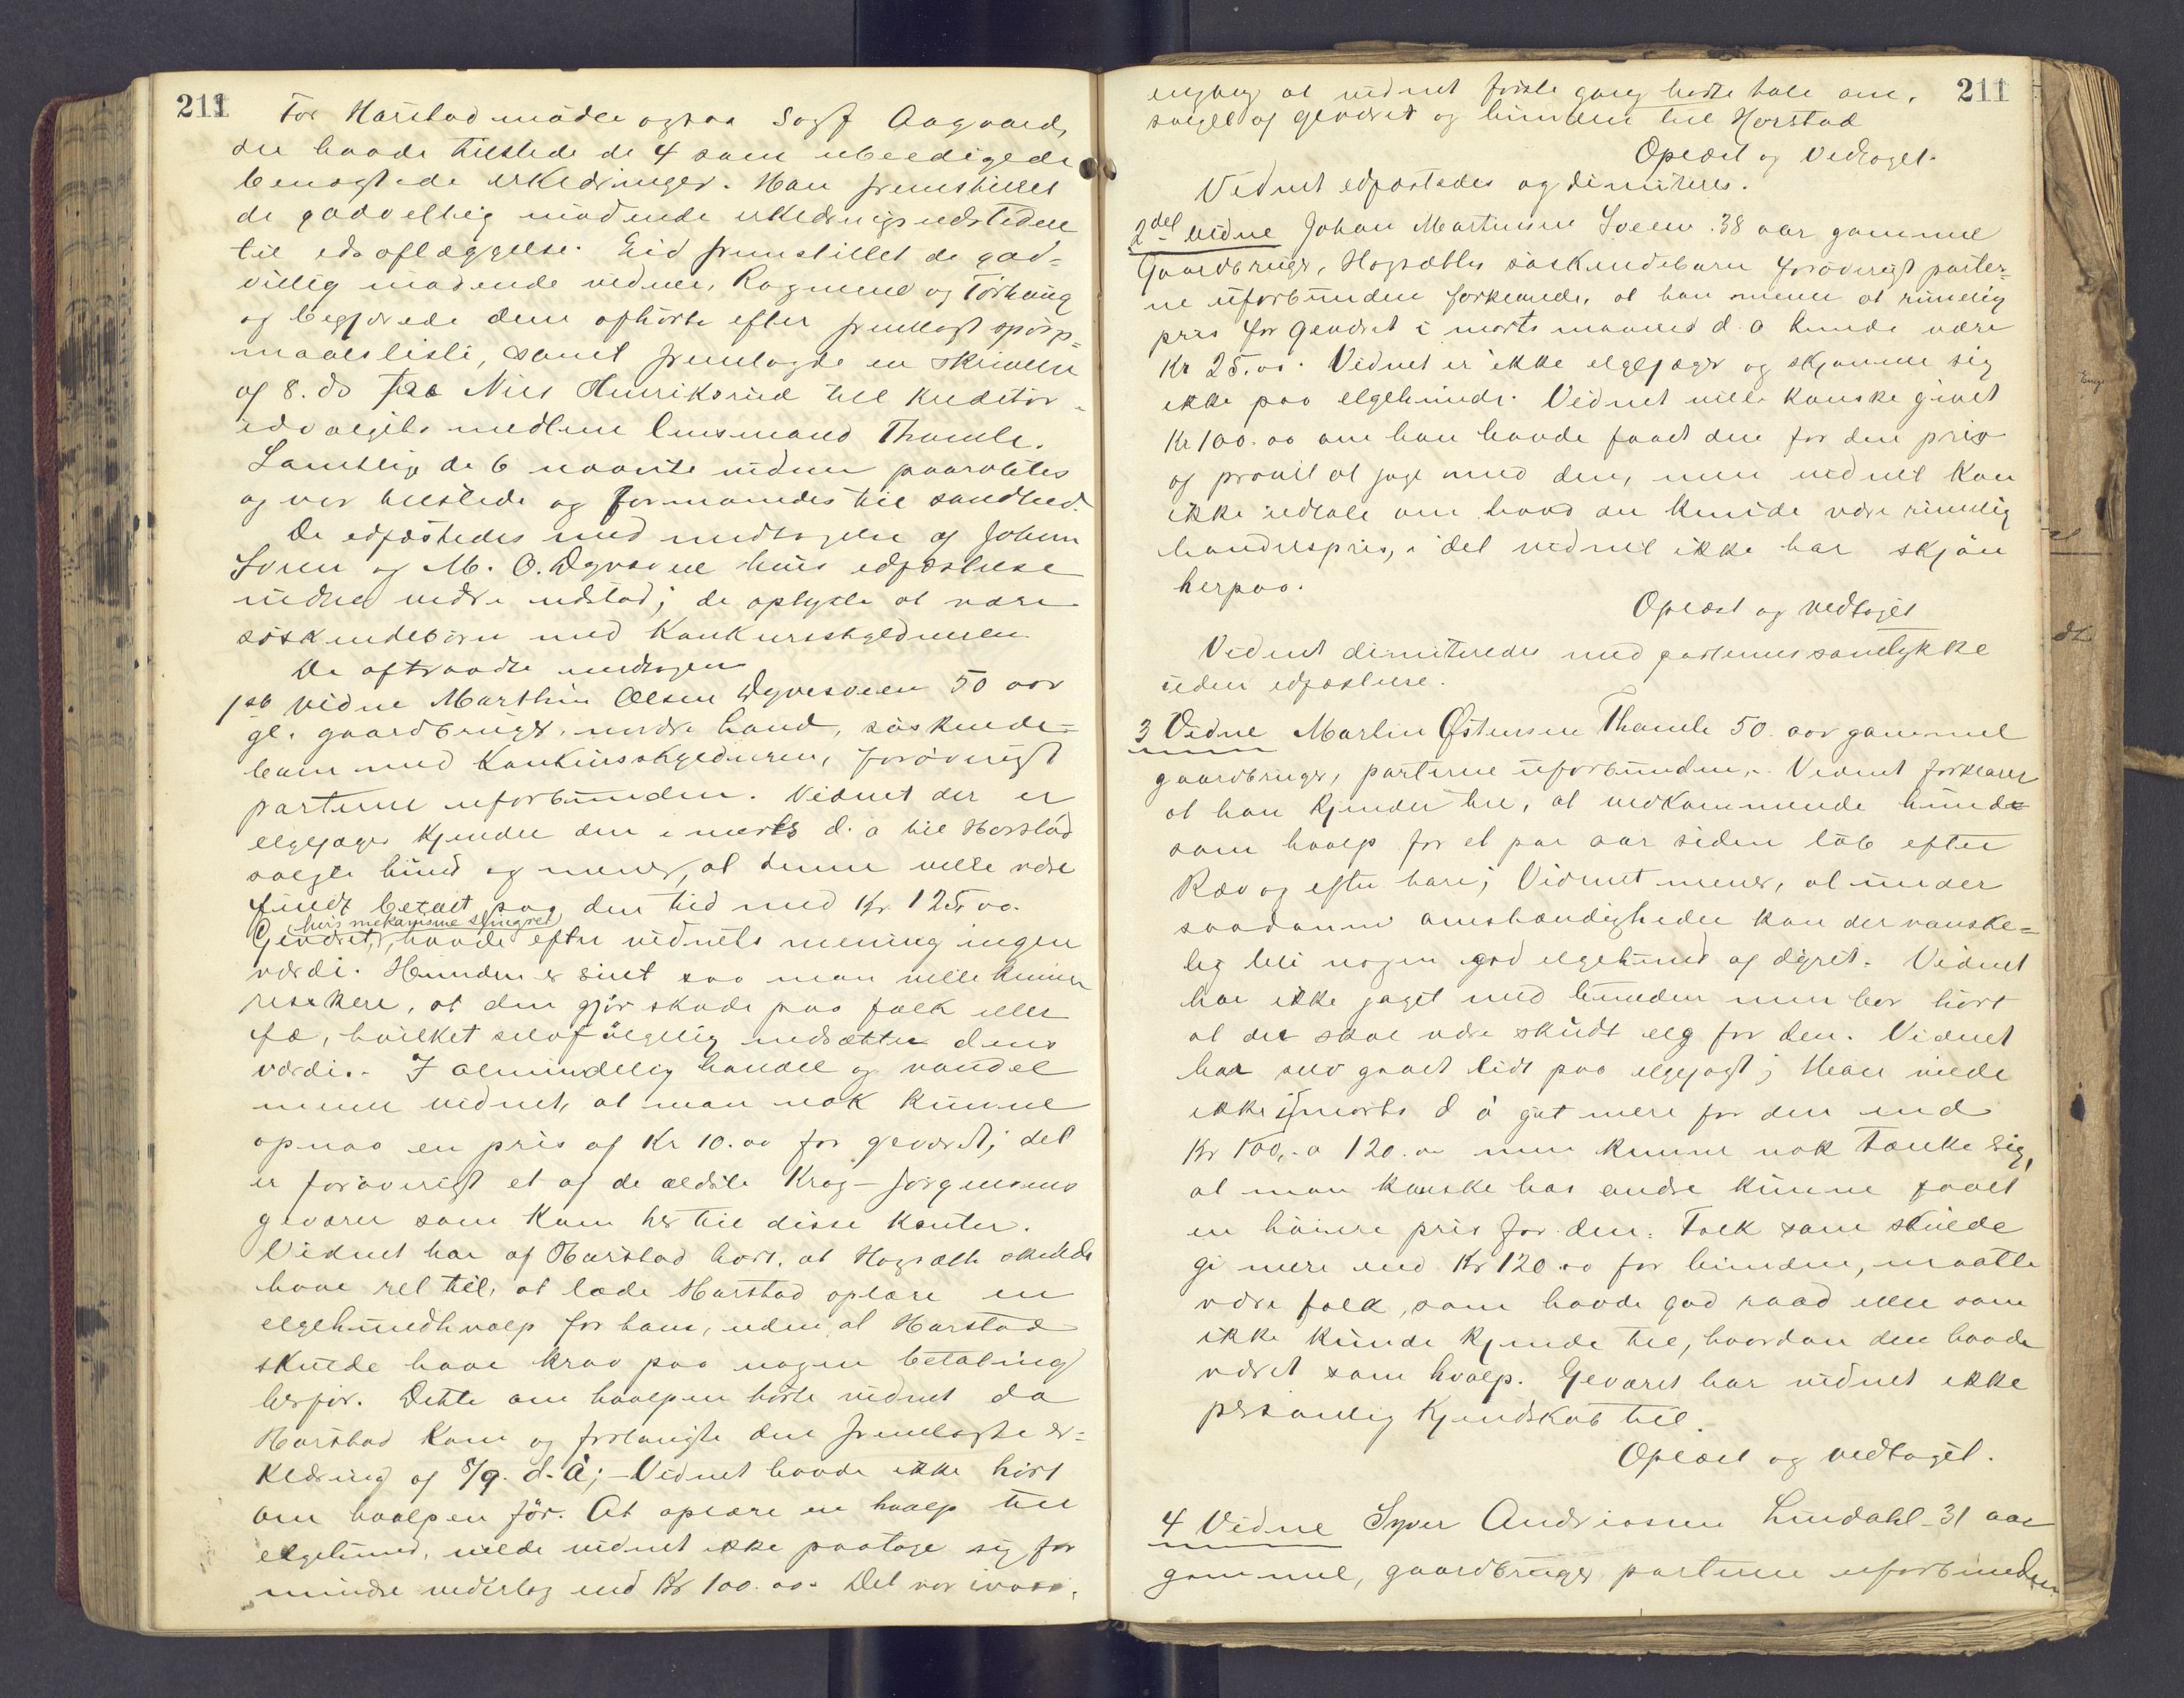 211
For Harstad mödte ogsaa Sagf Aagaard,
der havde tilstede de 4 som ubeedigede
benægtede erklæringer. Han fremstillet
de godvellig mödende erklæringsudstedere
til edsaflæggelse. Eid fremstillet de god=
villig mödende vidner, Rognerud og Törhaug
og begjærede dem afhörte efter fremlagt spörgs=
maalsliste, samt fremlagde en skrivelse
af 8. ds fra Nils Henriksrud til kreditor=
udvalgets medlem lensmand Thomle.
Samtlige de 6 nævnte vidner paaraabtes
og var tilstede og formanedes til sandhed.
De edfæstedes med undtagelse af Johan
Sveen og M. O. Dyvesveen hvis edfæstelse
indtil videre udstod; de oplyste at være
söskendebörn med Konkursskyldneren.
De aftraadte undtagen
1ste vidne Marthin Olsen Dyvesveen 50 aar
gl. gaardbruger, nordre Land, söskende=
barn med Konkursskyldneren, forövrigt
parterne uforbunden. Vidnet der er
elgjæger kjender den i marts d. a til Harstad
solgte hund og mener, at denne ville være
fuldt betalt paa den tid med Kr. 125.00.
hvis mekanisme slingret
Geværet, havde efter vidnets mening ingen
værdi. Hunden er sint saa man ville kunne
resikere, at den gjör skade paa folk eller
fæ, hvilket selvfölgelig nedsætter dens
værdi. I almindelig handel og vandel
mener vidnet, at man nok kunne
opnaa en pris af Kr 10.00 for geværet; det
er forövrigt et af de ældste Krag-Jörgensens
geværer som kom her til disse kanter.
Vidnet har af Harstad hört, at Hogsæth skulde
have ret til, at lade Harstad oplære en
elgehundhvalp for ham, uden at Harstad
skulde have krav paa nogen betaling
herfor. Dette om hvalpen hörte vidnet da
Harstad kom og forlangte den fremlagte er=
klæring af 8/9. d. å; - Vidnet havde ikke hört
om hvalpen för. At oplære en hvalp til
elgehund, vilde vidnet ikke paatage sig for
mindre vederlag end Kr 100.00. Det var
211
engang at vidnet förste gang hörte tale om,
salget af geværet og hunden til Harstad
Oplæst og Vedtaget.
Vidnet edfæstedes og dimiteres.
2det vidne Johan Martinsen Sveen 38 aar gammel
Gaardbruger, Hogsæths söskendebarn forövrigt parter=
ne uforbunden forklarede, at han mener at rimelig
pris for geværet i marts maaned d. a kunde være
Kr 25.00. Vidnet er ikke elgjæger og skjönner sig
ikke paa elgehunde. Vidnet ville kanske givet
Kr 100.00 om han havde faaet den for den pris
og prøvet at jage med den, men vidnet kan
ikke udtale om hvad der kunde være rimelig
handelspris, i det vidnet ikke har skjön
herpaa.
Oplæst og vedtaget
Vidnet dimiteredes med parternes samtykke
uden edfæstelse.
3 Vidne Martin Østensen Thomle 50 aar gammel
gaardbruger, parterne uforbunden. Vidnet forklarer
at han kjender til, at vedkommende hund
som hvalp for et par aar siden löb efter
Ræv og efter hare; Vidnet mener, at under
saadanne omstændigheder kan der vanske=
lig bli nogen god elgehund af dyret. Vidnet
har ikke jaget med hunden men har hört
at der skal være skudt elg for den. Vidnet
har selv gaaet lidt paa elgjagt; Han vilde
ikke i marts d å git mere for den end
Kr 100,- a 120.00 men kunne nok tænke sig,
at man kanske hos andre kunne faaet
en höiere pris for den. Folk som skulde
gi mere end Kr 120.00 for hunden, maatte
være folk, som havde god raad eller som
ikke kunde kjende til, hvordan den havde
været som hvalp. Geværet har vidnet ikke
personlig kjendskab til.
Oplæst og vedtaget.
4 Vidne Syver Andreassen Lundahl 31 aar
gammel, gaardbruger parterne uforbunden